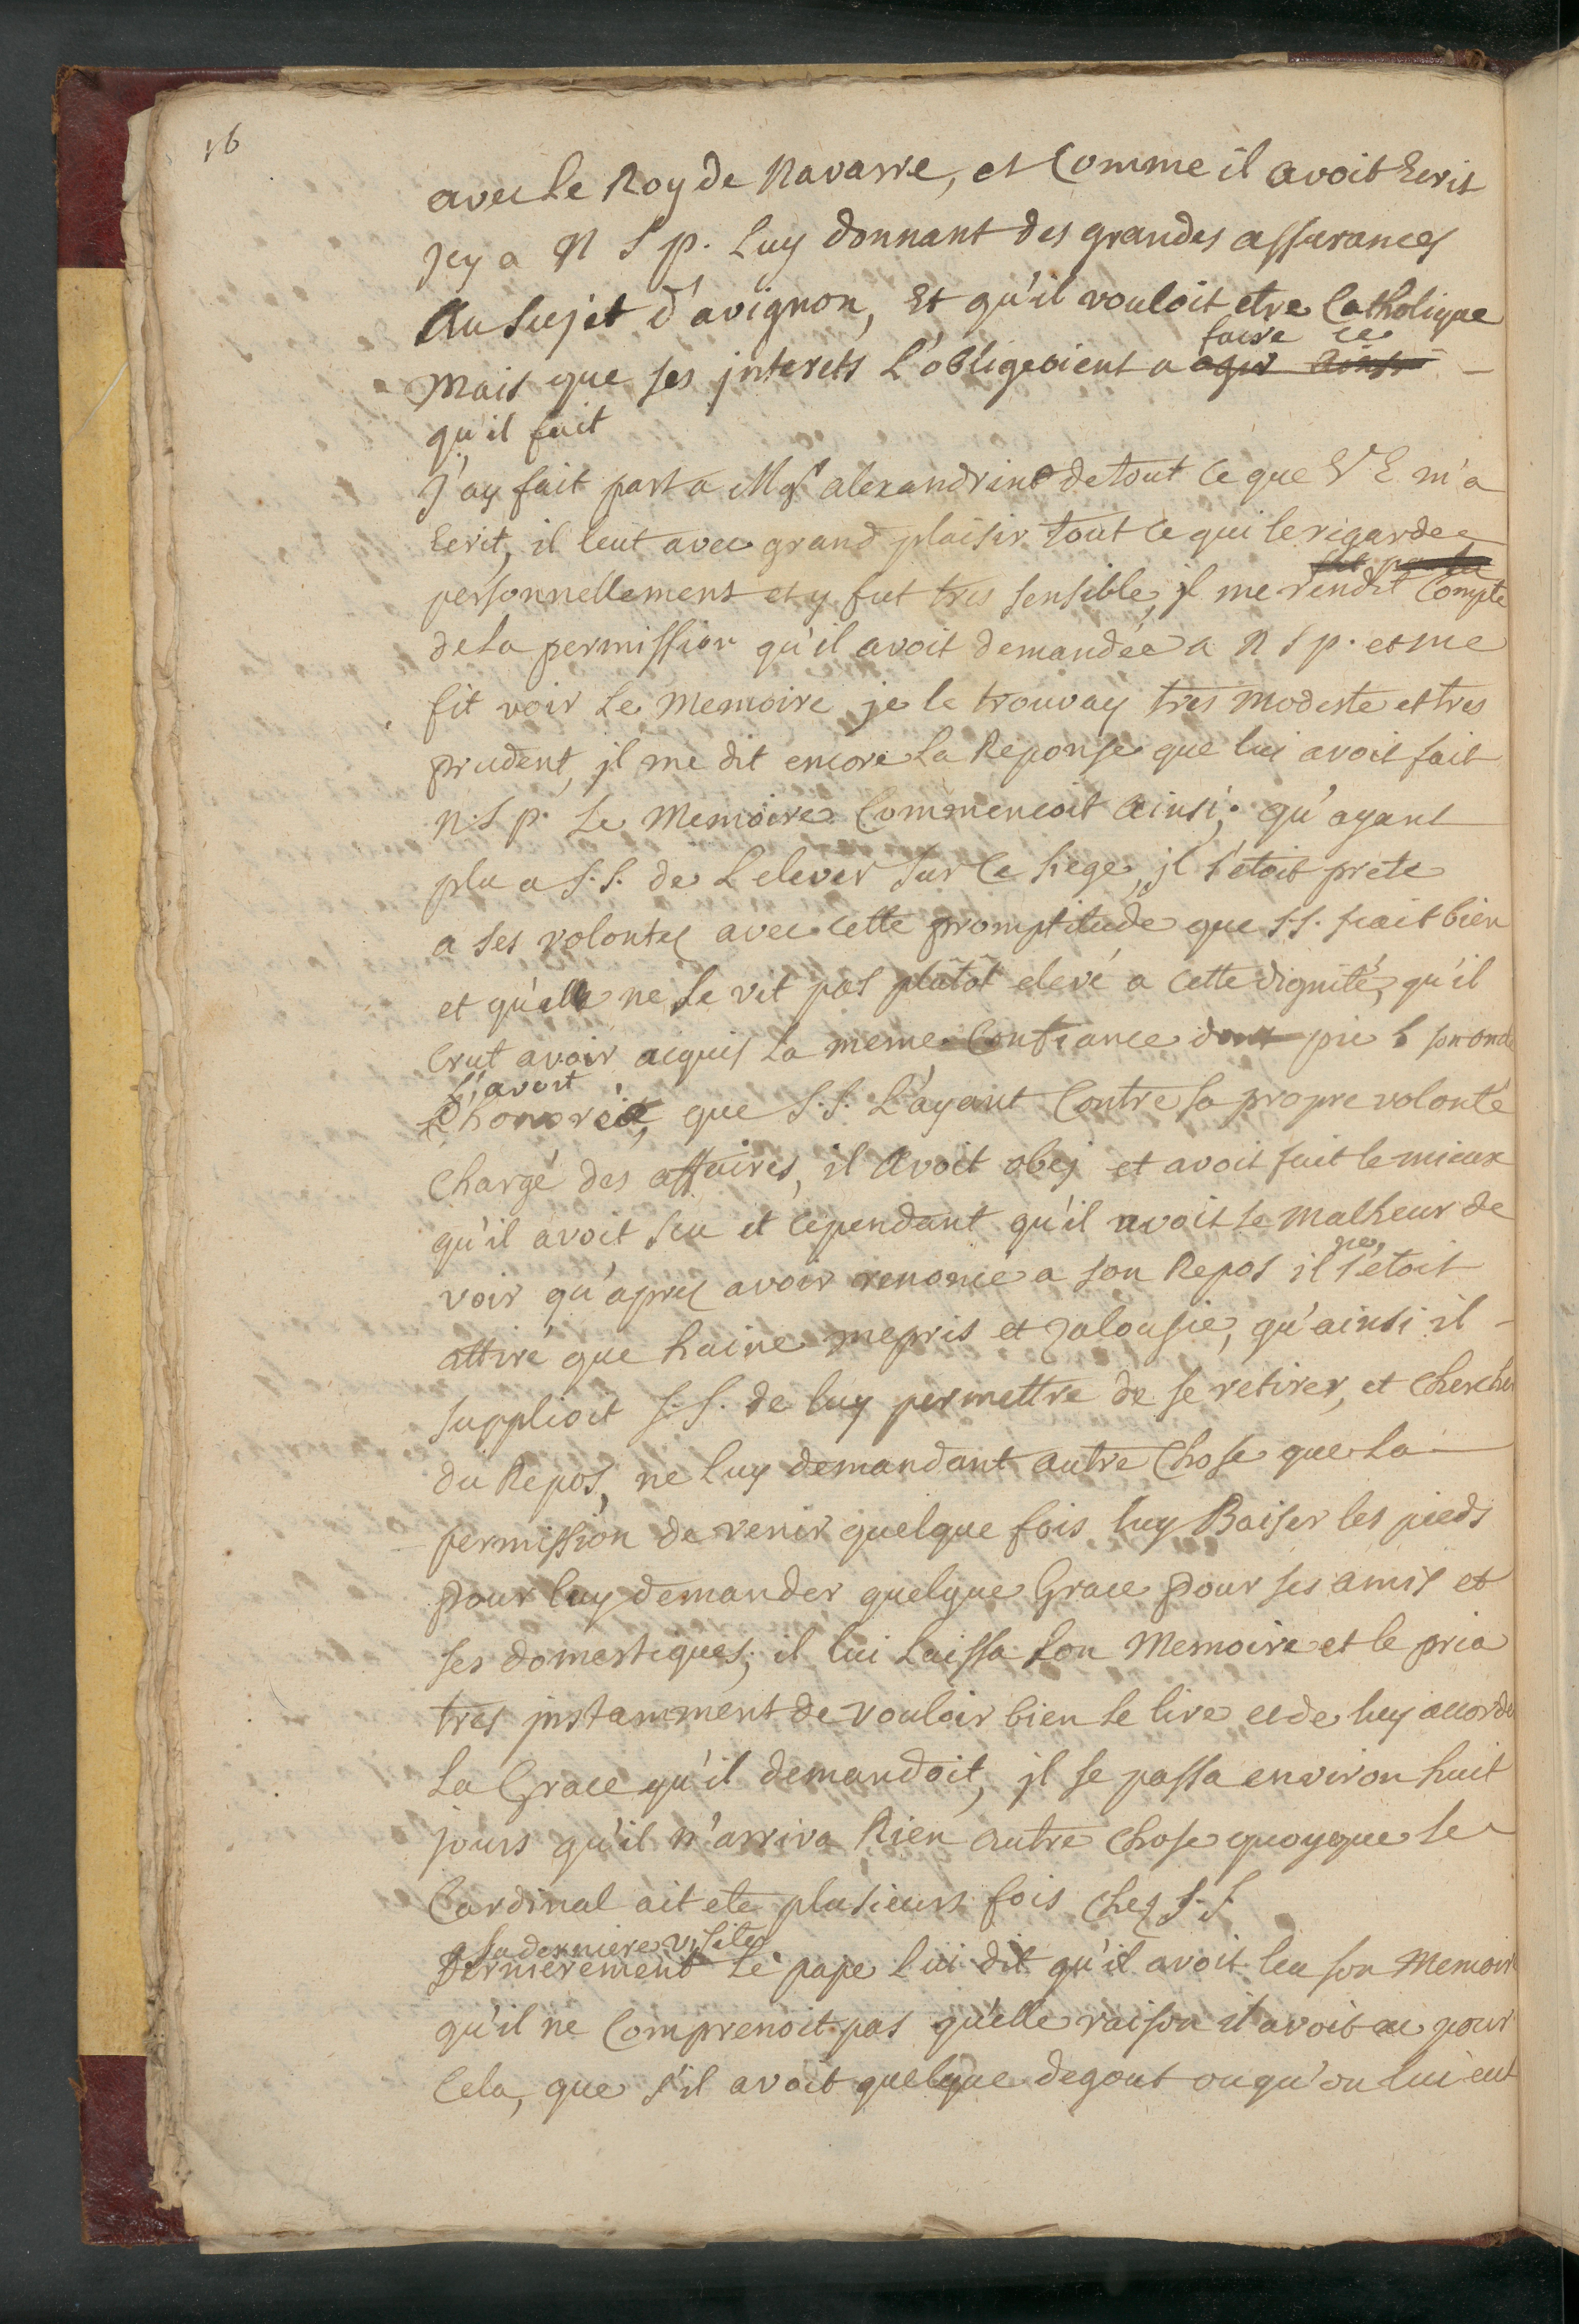 16
avec Le Roy de Navarre, et Comme il avoit Ecrit
Jcy a N S p. Luy donnant des grandes assurances
Au Sujet d'avignon, Et qu'il vouloit etre Catholique
faire ce
Mais que ses jnterets L'obligeoient a agir ainsi —
qu'il fait
J'ay fait part a Mgr alexandrint de tout ce que V E m'a
Ecrit, il leut avec grand plaisir tout ce qui le regarde
personnellement et y fut tres sensible, jl me rendit Compte
de La permission qu'il avoit demandée a N S p. et me
fit voir Le Memoire je le trouvay tres modeste et tres
prudent, jl me dit encore La Reponse que lui avoit fait
N. S p. Le Memoire Commencoit ainsi; qu'ayant
plu a S. S. de L'elever sur Ce siege, jl s'etoit prete
a ses volontez avec cette promptitude que S. S. scait bien
et qu'elle ne Le vit pas plûtôt elevé a cette dignité, qu'il
Crut avoir acquis La meme Confiance dont pie 5 son oncle
L'avoit
honoréit, que S. S. L'ayant Contre sa propre volonté
Chargé des affaires, il Avoit obej et avoit fait le mieux
qu'il avoit scu et cependant qu'il avoit le Malheur de
voir qu'apres avoir renoncé a son Repos il ne s'etoit
attiré que haine mepris et Jalousie, qu'ainsi il -
supplioit S. S. de luy permettre de se retirer, et Chercher
du Repos, ne luy demandant autre Chose que La —
permission de venir quelque fois luy Baiser les pieds
pour luy demander quelque Grace pour ses amis et
ses domestiques; il lui Laissa son Memoire et le pria
tres jnstamment de vouloir bien le lire et de luy accorder
La Grace qu'il demandoit, jl se passa environ huit
jours qu'il n'arriva Rien autre Chose quoyque le
Cardinal ait ete plusieurs fois Chez S. S.
a sa derniere visite
Dernierement Le pape Lui dit qu'il avoit leu son Memoire
qu'il ne Comprenoit pas qu'elle raison il avoit eu pour
Cela, que s'il avoit quelque degout ou qu'on lui eut